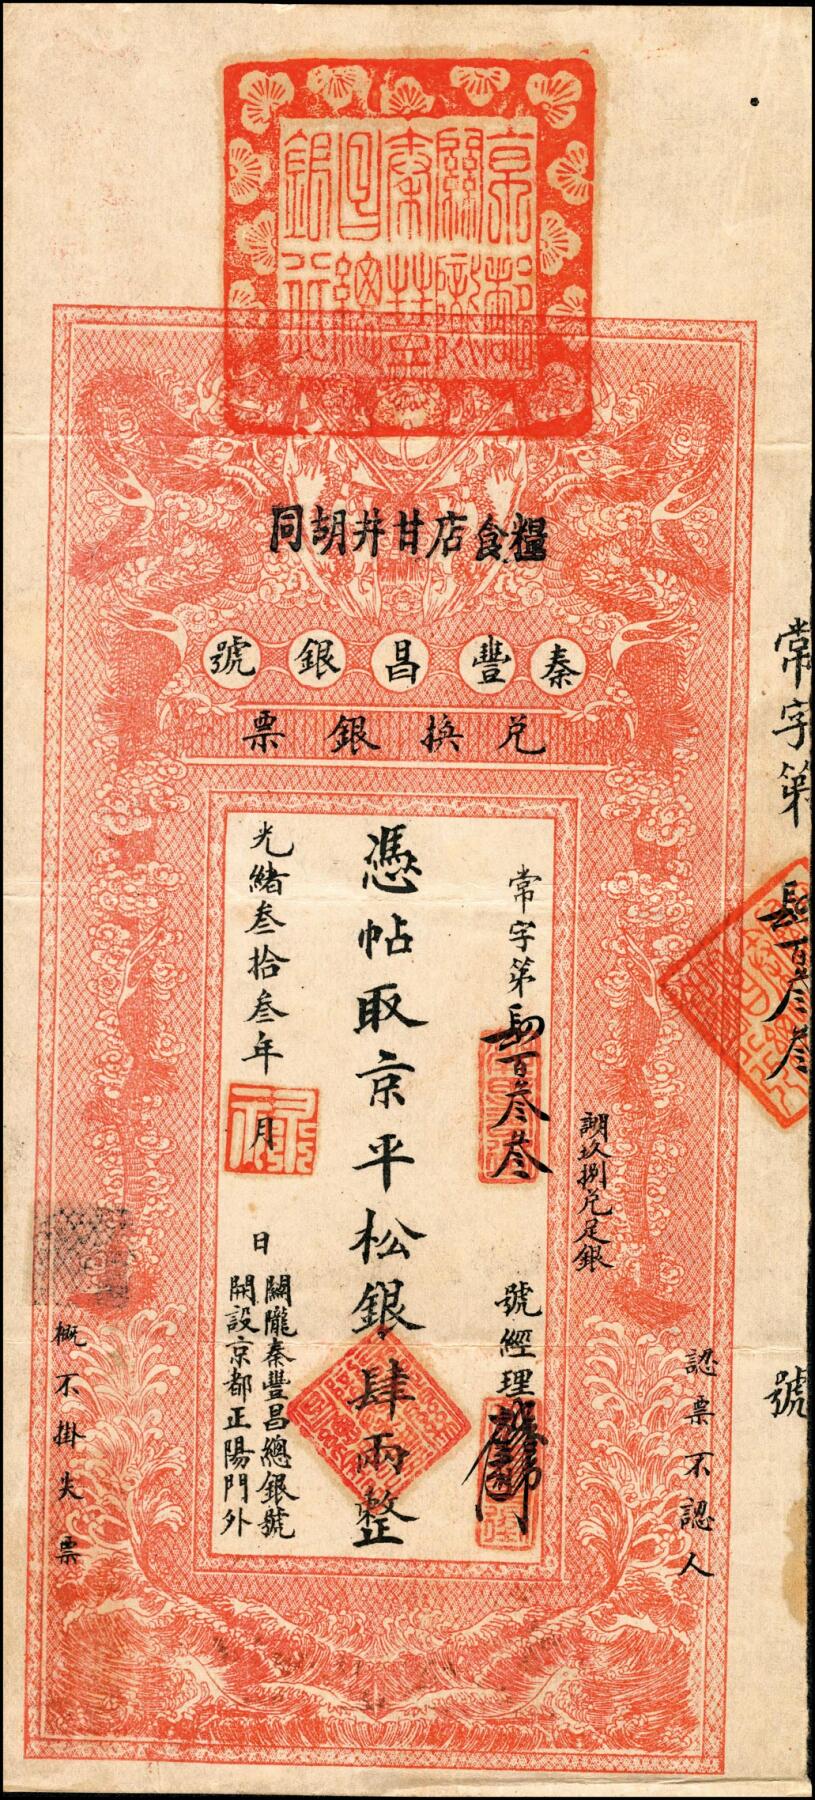 京都
關隴
秦豐
昌總
銀行
糧食店甘井胡同
秦豐昌銀號
兌換銀票
常字第肆百叁叁
號經理
憑帖取京平松銀肆兩整
光緒叁拾叁年
月
日
關隴秦豐昌總銀號
開設京都正陽門外
玖捌兌足銀
認票不認人
概不掛失票
常字第
肆百叁叁
號